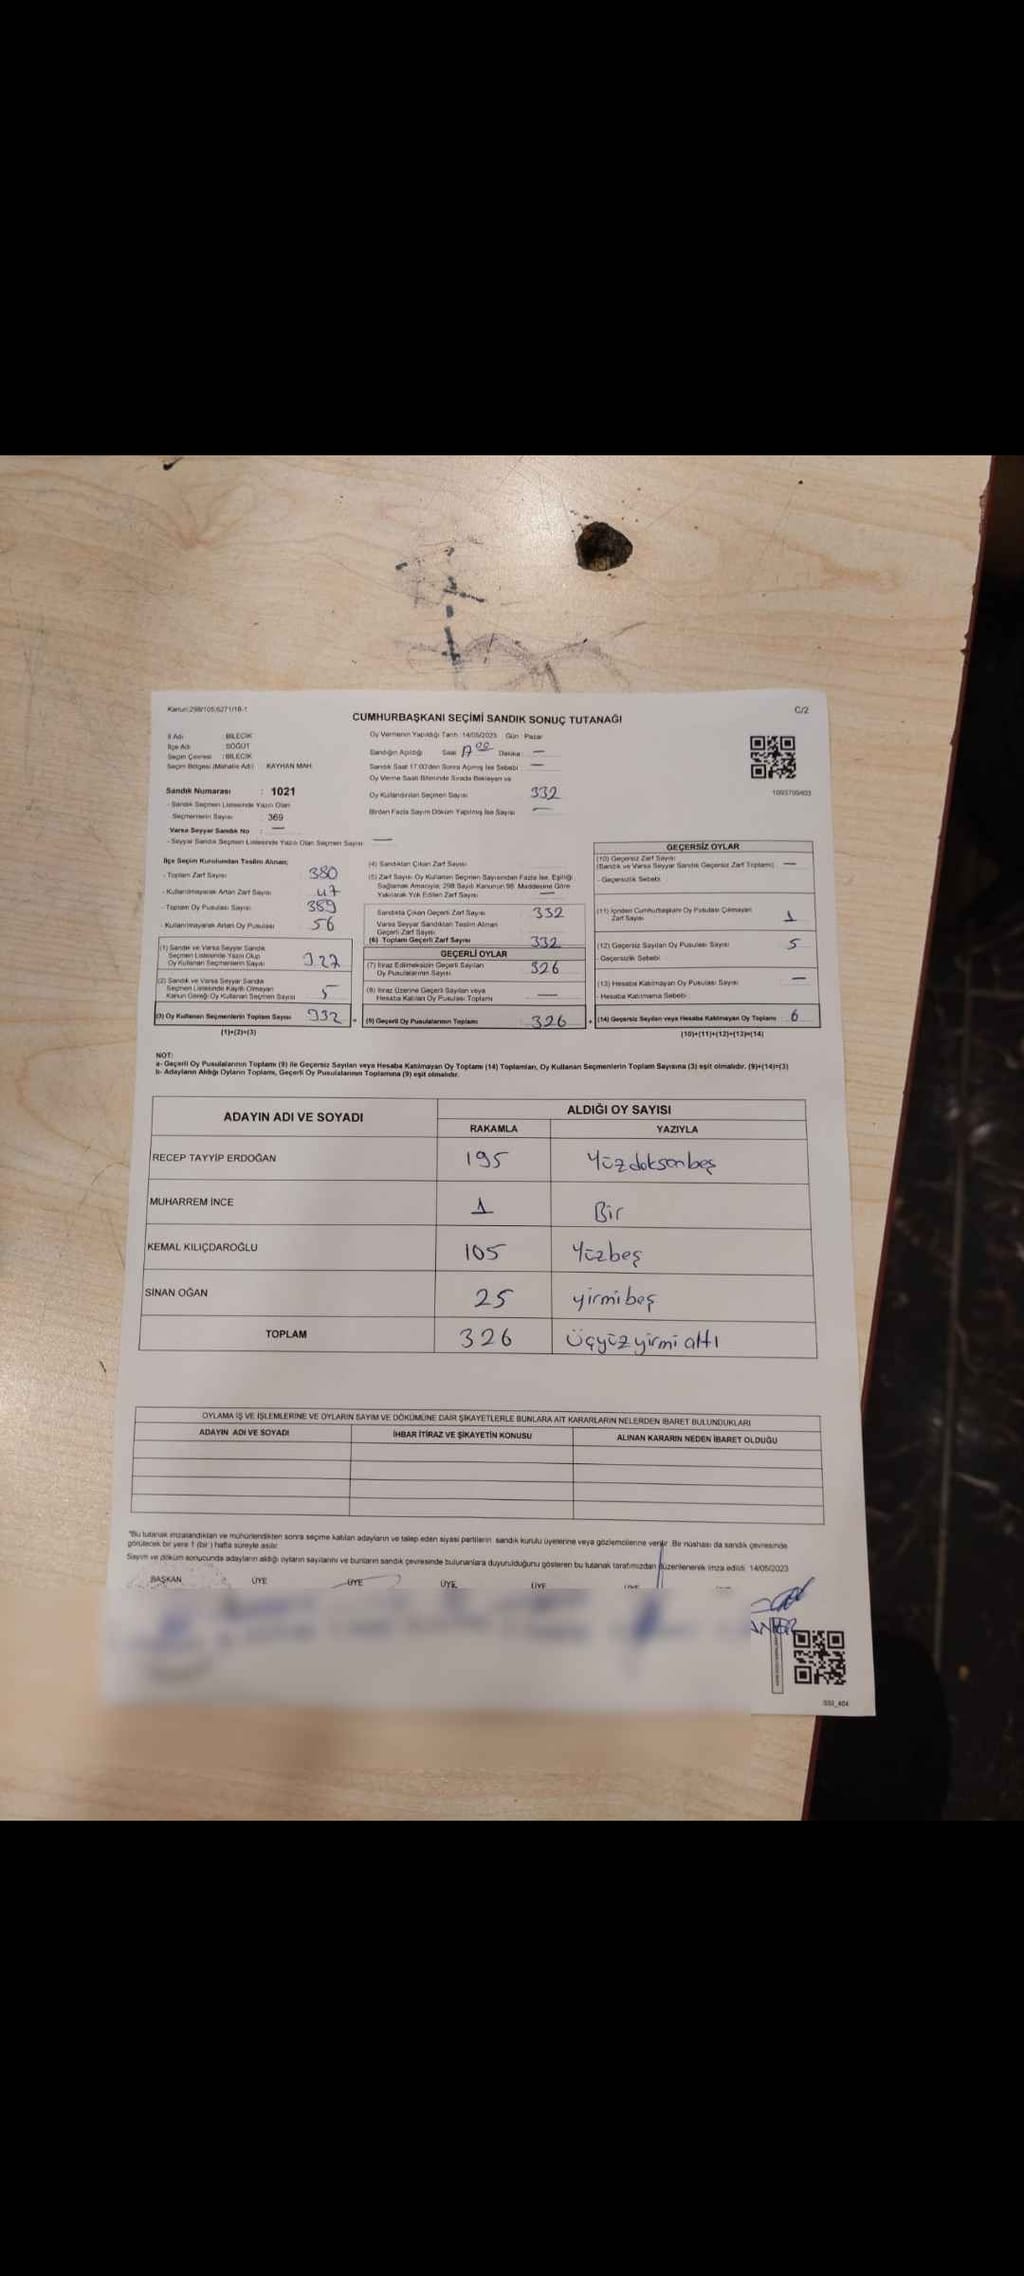 Kanun:298/105;6271/18-1
C/2
CUMHURBAŞKANI SEÇİMİ SANDIK SONUÇ TUTANAĞI
İl Adı : BİLECİK
İlçe Adı : SÖĞÜT
Seçim Çevresi : BİLECİK
Seçim Bölgesi (Mahalle Adı) : KAYHAN MAH.
Oy Vermenin Yapıldığı Tarih : 14/05/2023 Gün : Pazar
Sandığın Açıldığı Saat Dakika : —
Sandık Saat 17:00'den Sonra Açılmış İse Sebebi : —
Oy Verme Saati Bitiminde Sırada Bekleyen ve
Oy Kullandırılan Seçmen Sayısı 332
Birden Fazla Sayım Döküm Yapılmış İse Sayısı —
Sandık Numarası : 1021
- Sandık Seçmen Listesinde Yazılı Olan
- Seçmenlerin Sayısı : 369
Varsa Seyyar Sandık No : —
- Seyyar Sandık Seçmen Listesinde Yazılı Olan Seçmen Sayısı —
İlçe Seçim Kurulundan Teslim Alınan;
- Toplam Zarf Sayısı 380
- Kullanılmayarak Artan Zarf Sayısı 47
- Toplam Oy Pusulası Sayısı 389
- Kullanılmayarak Artan Oy Pusulası 56
(1) Sandık ve Varsa Seyyar Sandık
Seçmen Listesinde Yazılı Olup
Oy Kullanan Seçmenlerin Sayısı 327
(2) Sandık ve Varsa Seyyar Sandık
Seçmen Listesinde Kayıtlı Olmayan
Kanun Gereği Oy Kullanan Seçmen Sayısı 5
(3) Oy Kullanan Seçmenlerin Toplam Sayısı 332
(1)+(2)=(3)
(4) Sandıktan Çıkan Zarf Sayısı
(5) Zarf Sayısı Oy Kullanan Seçmen Sayısından Fazla İse, Eşitliği
Sağlamak Amacıyla; 298 Sayılı Kanunun 98. Maddesine Göre
Yakılarak Yok Edilen Zarf Sayısı —
Sandıkta Çıkan Geçerli Zarf Sayısı 332
Varsa Seyyar Sandıktan Teslim Alınan
Geçerli Zarf Sayısı
(6) Toplam Geçerli Zarf Sayısı 332
GEÇERLİ OYLAR
(7) İtiraz Edilmeksizin Geçerli Sayılan
Oy Pusulalarının Sayısı 326
(8) İtiraz Üzerine Geçerli Sayılan veya
Hesaba Katılan Oy Pusulası Toplamı —
(9) Geçerli Oy Pusulalarının Toplamı 326
1093709403
GEÇERSİZ OYLAR
(10) Geçersiz Zarf Sayısı
(Sandık ve Varsa Seyyar Sandık Geçersiz Zarf Toplamı) —
- Geçersizlik Sebebi :
(11) İçinden Cumhurbaşkanı Oy Pusulası Çıkmayan
Zarf Sayısı 1
(12) Geçersiz Sayılan Oy Pusulası Sayısı 5
- Geçersizlik Sebebi :
(13) Hesaba Katılmayan Oy Pusulası Sayısı —
- Hesaba Katılmama Sebebi :
(14) Geçersiz Sayılan veya Hesaba Katılmayan Oy Toplamı 6
(10)+(11)+(12)+(13)=(14)
NOT:
a- Geçerli Oy Pusulalarının Toplamı (9) ile Geçersiz Sayılan veya Hesaba Katılmayan Oy Toplamı (14) Toplamları, Oy Kullanan Seçmenlerin Toplam Sayısına (3) eşit olmalıdır. (9)+(14)=(3)
b- Adayların Aldığı Oyların Toplamı, Geçerli Oy Pusulalarının Toplamına (9) eşit olmalıdır.
ADAYIN ADI VE SOYADI ALDIĞI OY SAYISI
RAKAMLA YAZIYLA
RECEP TAYYİP ERDOĞAN 195 Yüzdoksanbeş
MUHARREM İNCE 1 Bir
KEMAL KILIÇDAROĞLU 105 Yüzbeş
SİNAN OĞAN 25 yirmibeş
TOPLAM 326 Üçyüzyirmialtı
OYLAMA İŞ VE İŞLEMLERİNE VE OYLARIN SAYIM VE DÖKÜMÜNE DAİR ŞİKAYETLERLE BUNLARA AİT KARARLARIN NELERDEN İBARET BULUNDUKLARI
ADAYIN ADI VE SOYADI İHBAR İTİRAZ VE ŞİKAYETİN KONUSU ALINAN KARARIN NEDEN İBARET OLDUĞU
*Bu tutanak imzalandıktan ve mühürlendikten sonra seçime katılan adayların ve talep eden siyasi partilerin sandık kurulu üyelerine veya gözlemcilerine verilir. Bir nüshası da sandık çevresinde
görülecek bir yere 1 (bir) hafta süreyle asılır.
Sayım ve döküm sonucunda adayların aldığı oyların sayılarını ve bunların sandık çevresinde bulunanlara duyurulduğunu gösteren bu tutanak tarafımızdan düzenlenerek imza edildi. 14/05/2023
BAŞKAN ÜYE ÜYE ÜYE ÜYE